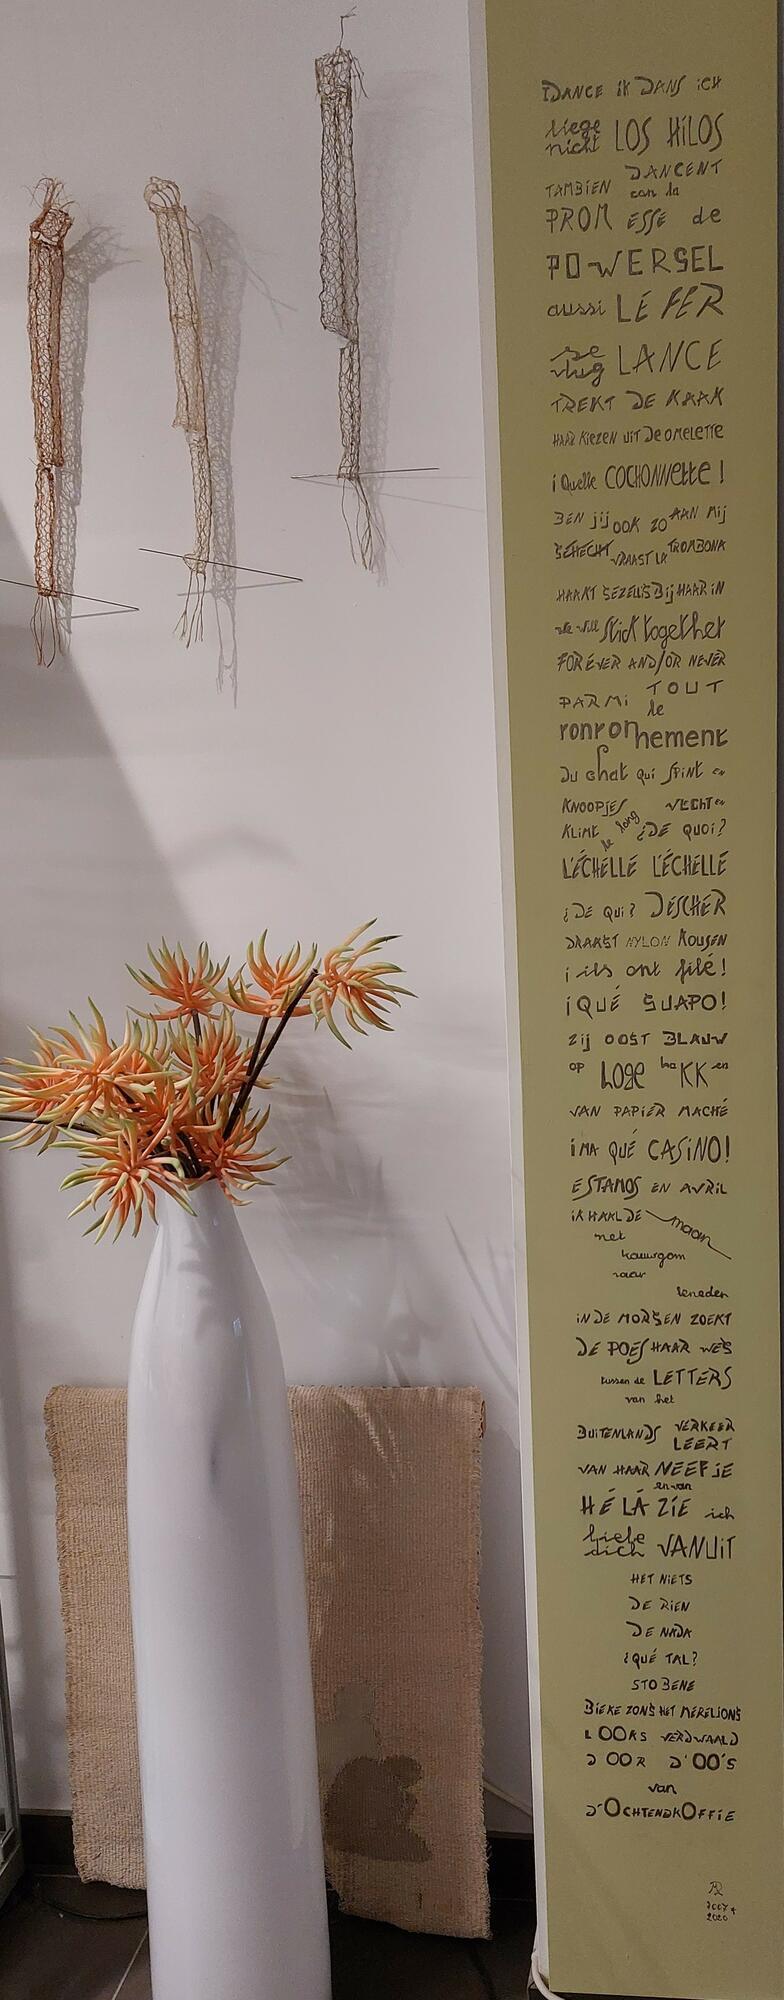 I DANCE IK DANS ICH
liege nicht LOS HILOS
TAMBIEN DANCENT con la
PROM ESSE de
POWERGEL
aussi LE FER
se vlug LANCE
TREKT DE KAAK
HAAR KIEZEN UIT De OMELETTE
¡ Quelle COCHONNEttE !
BEN jij OOK ZO AAN Mij
GEHECHT VRAAGT LA TROMBONA
HAAKT GEZELLIG Bij HAAR IN
we will Stick together
FOREVER AND/OR NEVER
PARMI TOUT le
ronronnement
DU chat qui SPINT en
KNOOPJES VLECHT en
KLIMT le long ¿DE QUOI?
L'ÉCHELLE L'ÉCHELLE
¿DE QUI? DESCHER
DRAAGT NYLON KOUSEN
¡ ils ont filé!
¡QUÉ GUAPO!
Zij OOGT BLAUW
OP hoge haKKen
VAN PAPIER MACHÉ
¡MA QUÉ CASINO!
ESTAMOS EN AVRIL
IK HAALDE maan
met
kauwgom
naar
beneden
IN DE MORGEN ZOEKT
DE POES HAAR WEG
tussen de LETTERS
van het
BUITENLANDS VERKEER
LEERT
VAN HAAR NEEFJE
en van
HÉ LÁ ZIE ich
liebe dich VANUIT
HET NIETS
DE RIEN
DE NADA
¿QUÉ TAL?
STO BENE
BIEKE ZONG HET MERELIONG
LOOKS VERDWAALD
DOOR D'OO'S
van
D'OCHTENDKOFFIE
2007 +
2020